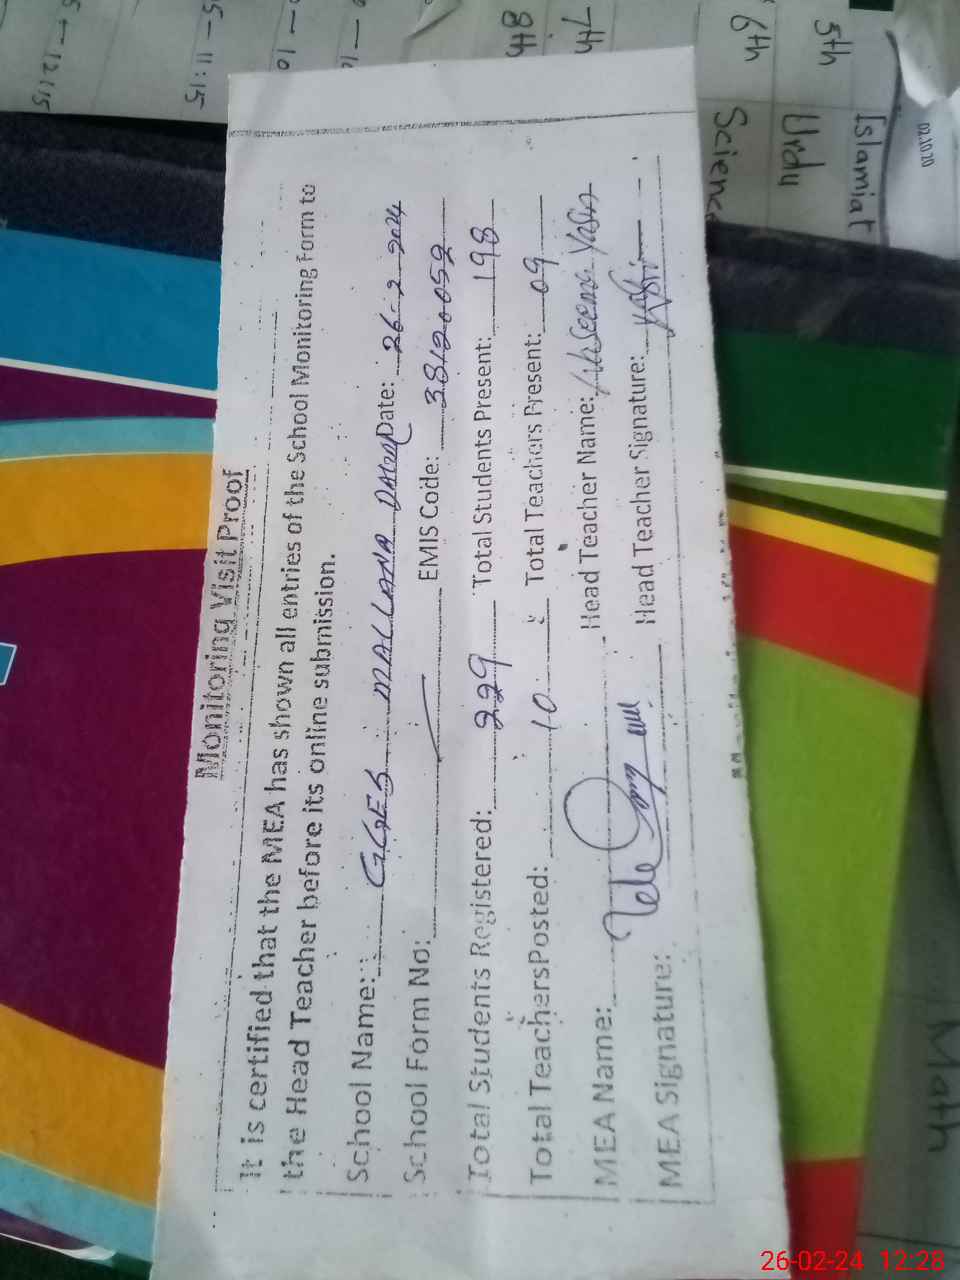 Monitoring Visit Proof
It is certified that the MEA has shown all entries of the School Monitoring Form to
the Head Teacher before its online submission.
School Name: GGES MALLANA Date: 26-2-2024
School Form No: EMIS Code: 38120052
Total Students Registered: 229 Total Students Present: 198
Total TeachersPosted: 10 Total Teachers Present: 09
MEA Name: Head Teacher Name: Yasin
MEA Signature: Head Teacher Signature:
5th Islamiat
6th Urdu
7th Science
8th
5-11:15
5-12:15
02.10.20
Math
26-02-24 12:28